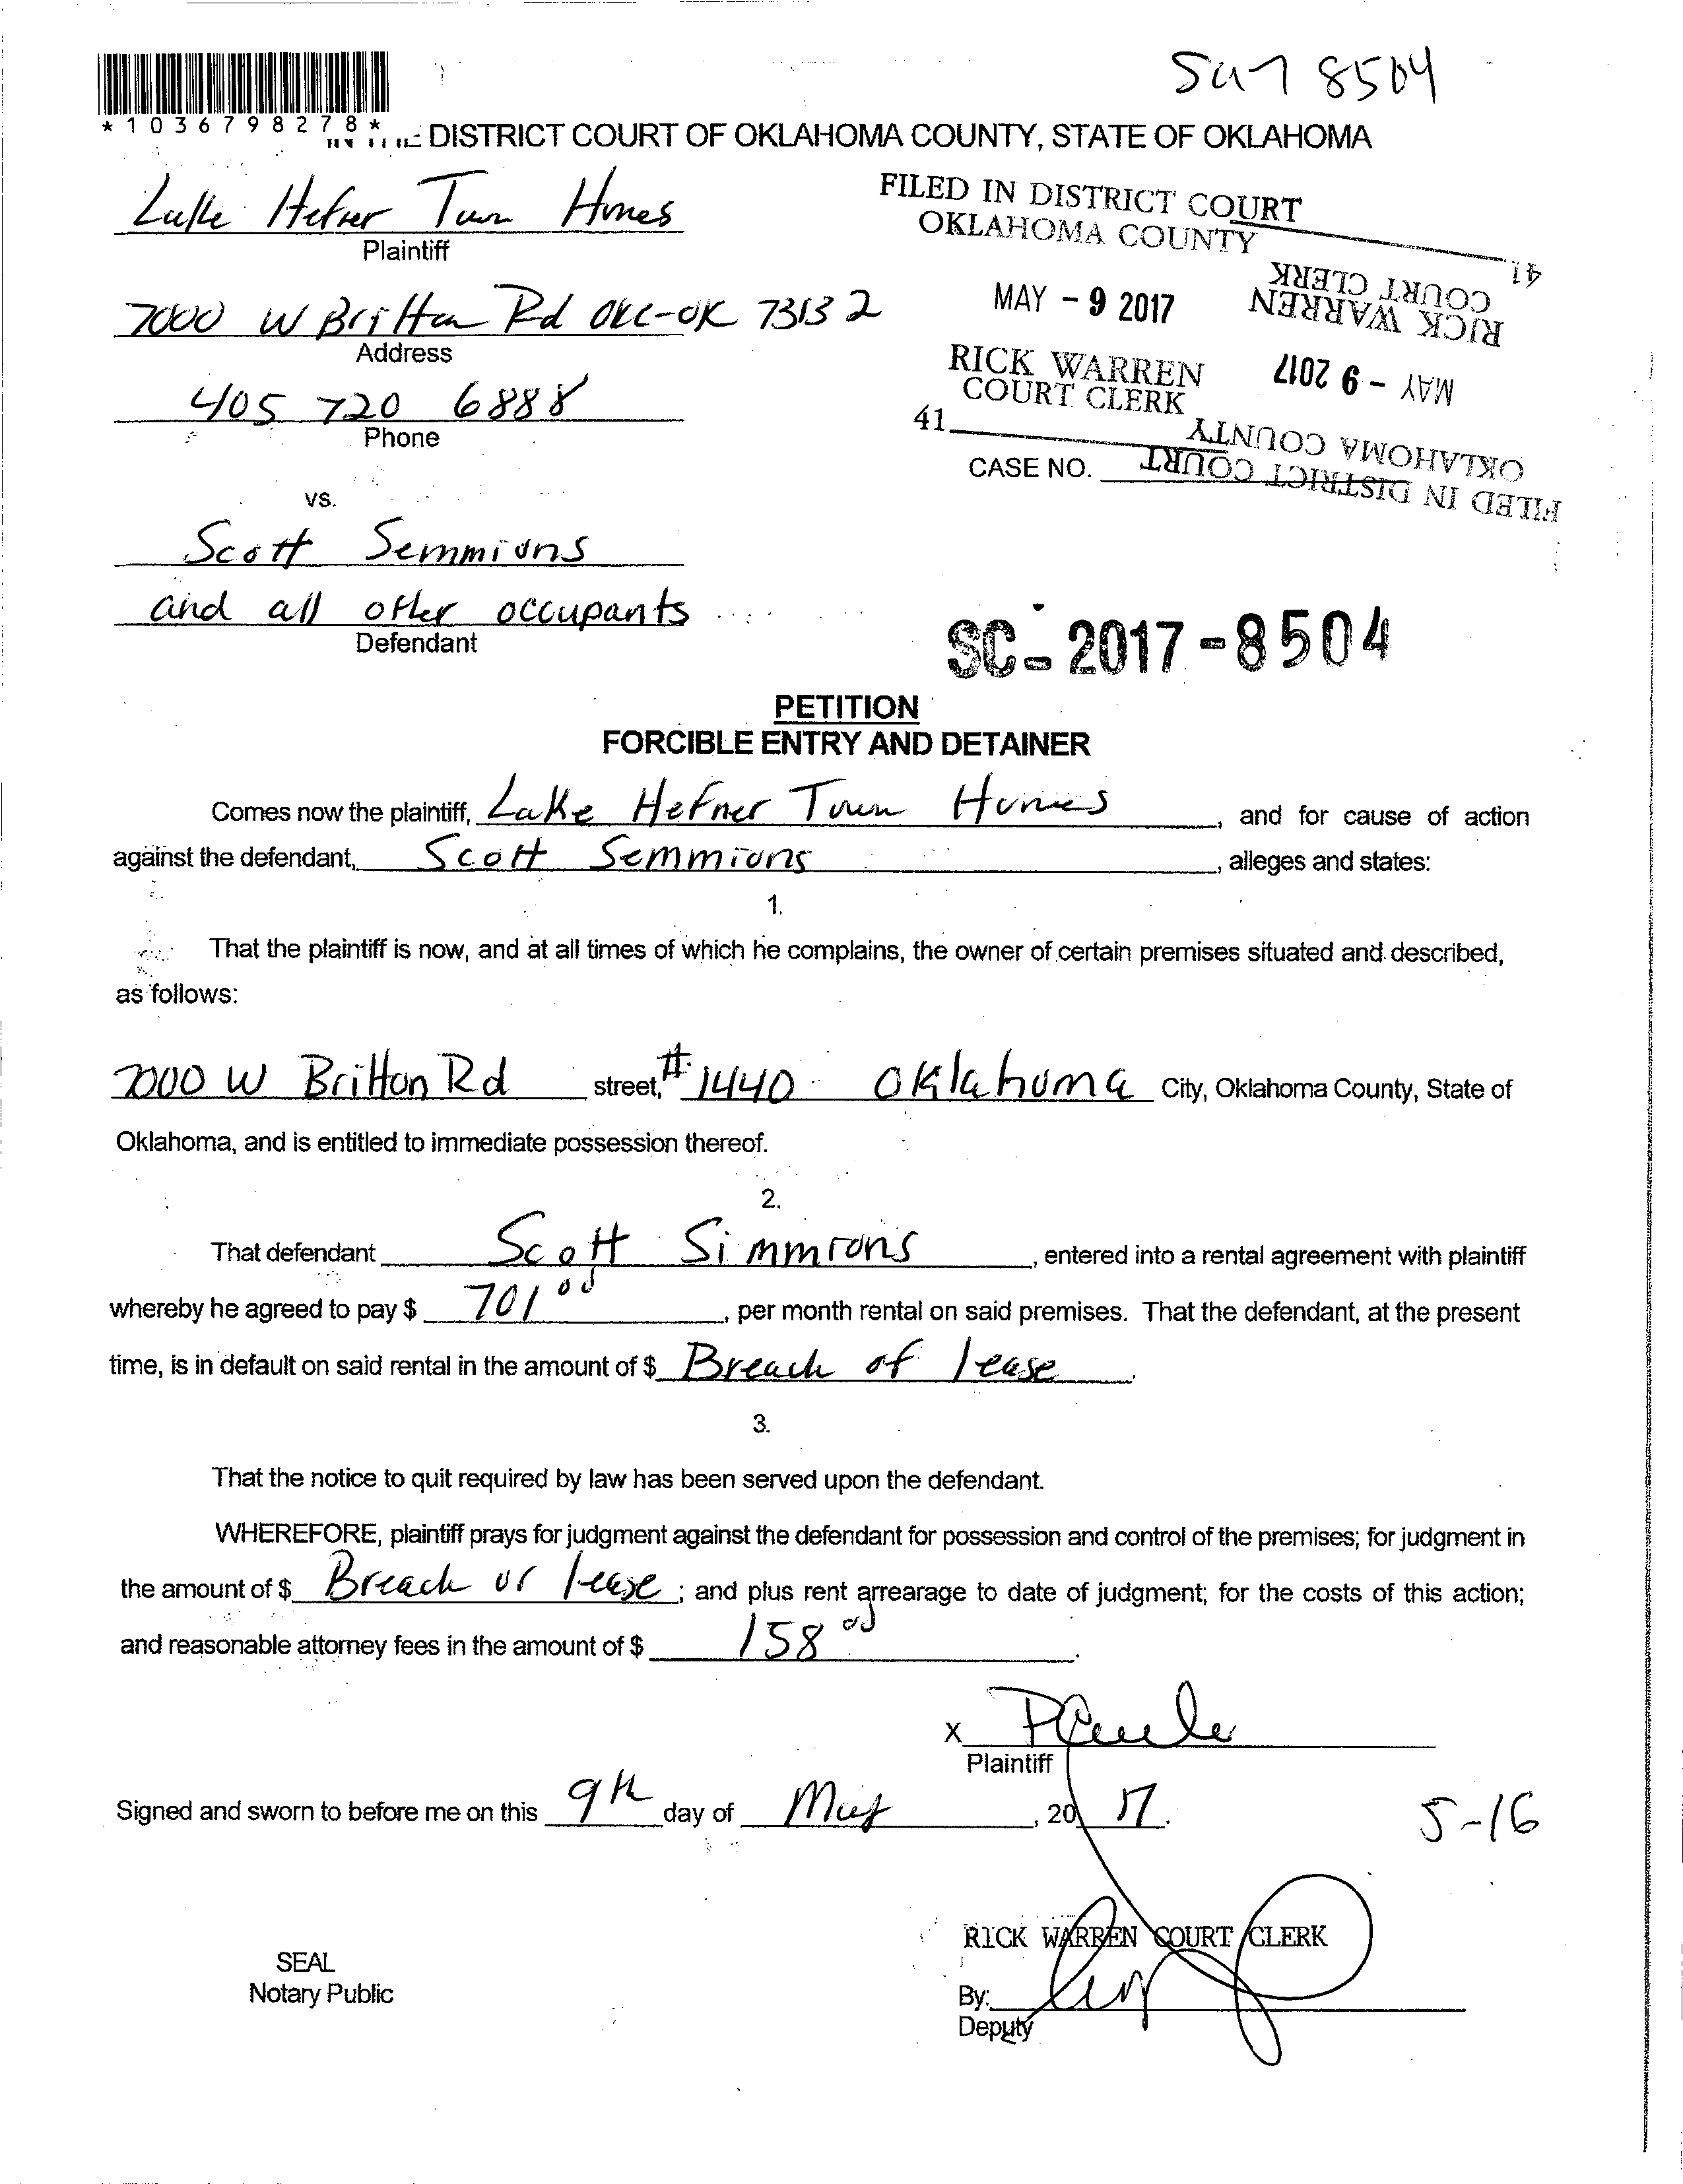 Sc17 8504
*1036798278*
DISTRICT COURT OF OKLAHOMA COUNTY, STATE OF OKLAHOMA
Lake Hefner Town Homes
Plaintiff
FILED IN DISTRICT COURT
OKLAHOMA COUNTY
MAY - 9 2017
RICK WARREN
COURT CLERK
41
7000 W Britton Rd OKC-OK 73132
Address
405 720 6888
Phone
FILED IN DISTRICT COURT
OKLAHOMA COUNTY
MAY - 9 2017
RICK WARREN
COURT CLERK
41
CASE NO.
vs.
Scott Semmions
and all other occupants
Defendant
SC-2017-8504
PETITION
FORCIBLE ENTRY AND DETAINER
Comes now the plaintiff, Lake Hefner Town Homes, and for cause of action
against the defendant, Scott Semmions, alleges and states:
1.
That the plaintiff is now, and at all times of which he complains, the owner of certain premises situated and described,
as follows:
7000 W Britton Rd street, #1440 Oklahoma City, Oklahoma County, State of
Oklahoma, and is entitled to immediate possession thereof.
2.
That defendant Scott Simmions, entered into a rental agreement with plaintiff
whereby he agreed to pay $ 701 00, per month rental on said premises. That the defendant, at the present
time, is in default on said rental in the amount of $ Breach of lease.
3.
That the notice to quit required by law has been served upon the defendant.
WHEREFORE, plaintiff prays for judgment against the defendant for possession and control of the premises; for judgment in
the amount of $ Breach of lease; and plus rent arrearage to date of judgment; for the costs of this action;
and reasonable attorney fees in the amount of $ 158 00.
X
Plaintiff
Signed and sworn to before me on this 9th day of May, 20 17.
5-16
RICK WARREN COURT CLERK
SEAL
Notary Public
By:
Deputy